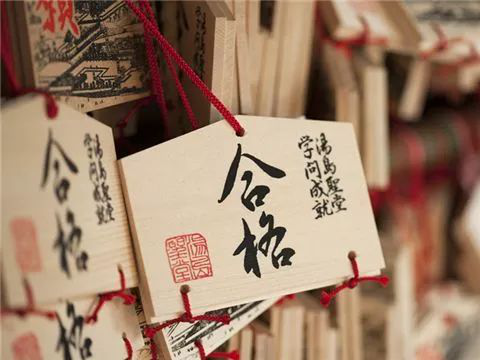 湯島聖堂
学問成就
合格
湯島
聖堂
学問成就
合格
格